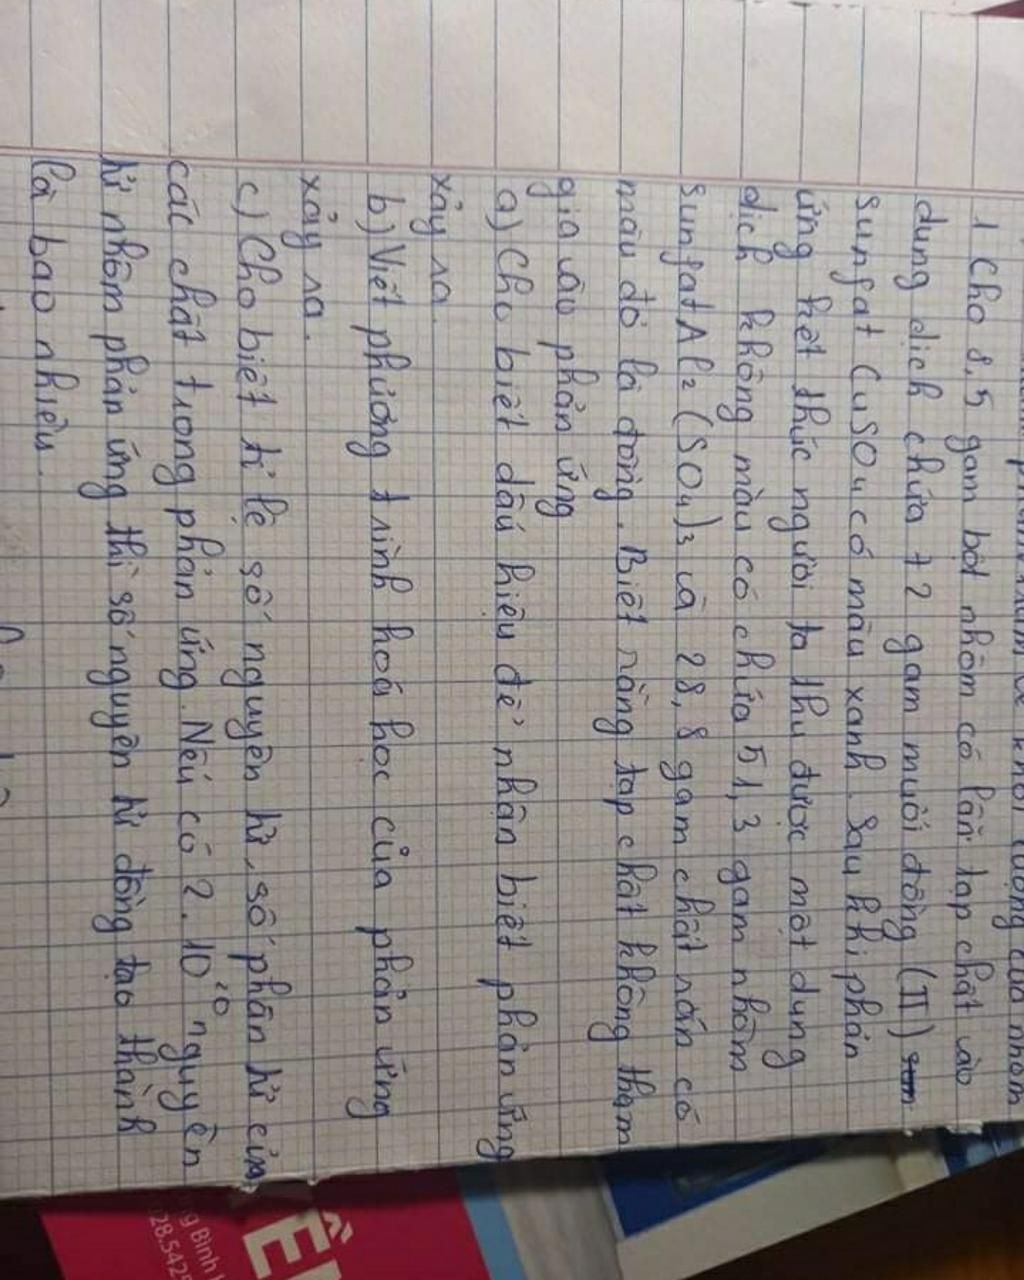 khối lượng của nhôm
1 Cho 8,5 gam bột nhôm có lẫn tạp chất vào
dung dịch chứa 72 gam muối đồng (II)
sunfat CuSO4 có màu xanh. Sau khi phản
ứng kết thúc người ta thu được một dung
dịch không màu có chứa 51,3 gam nhôm
sunfat Al2(SO4)3 và 28,8 gam chất rắn có
màu đỏ là đồng. Biết rằng tạp chất không tham
gia vào phản ứng
a) Cho biết dấu hiệu để nhận biết phản ứng
xảy ra.
b) Viết phương trình hoá học của phản ứng
xảy ra.
c) Cho biết tỉ lệ số nguyên tử, số phân tử của
các chất trong phản ứng. Nếu có 2.10²⁰ nguyên
tử nhôm phản ứng thì số nguyên tử đồng tạo thành
là bao nhiêu.